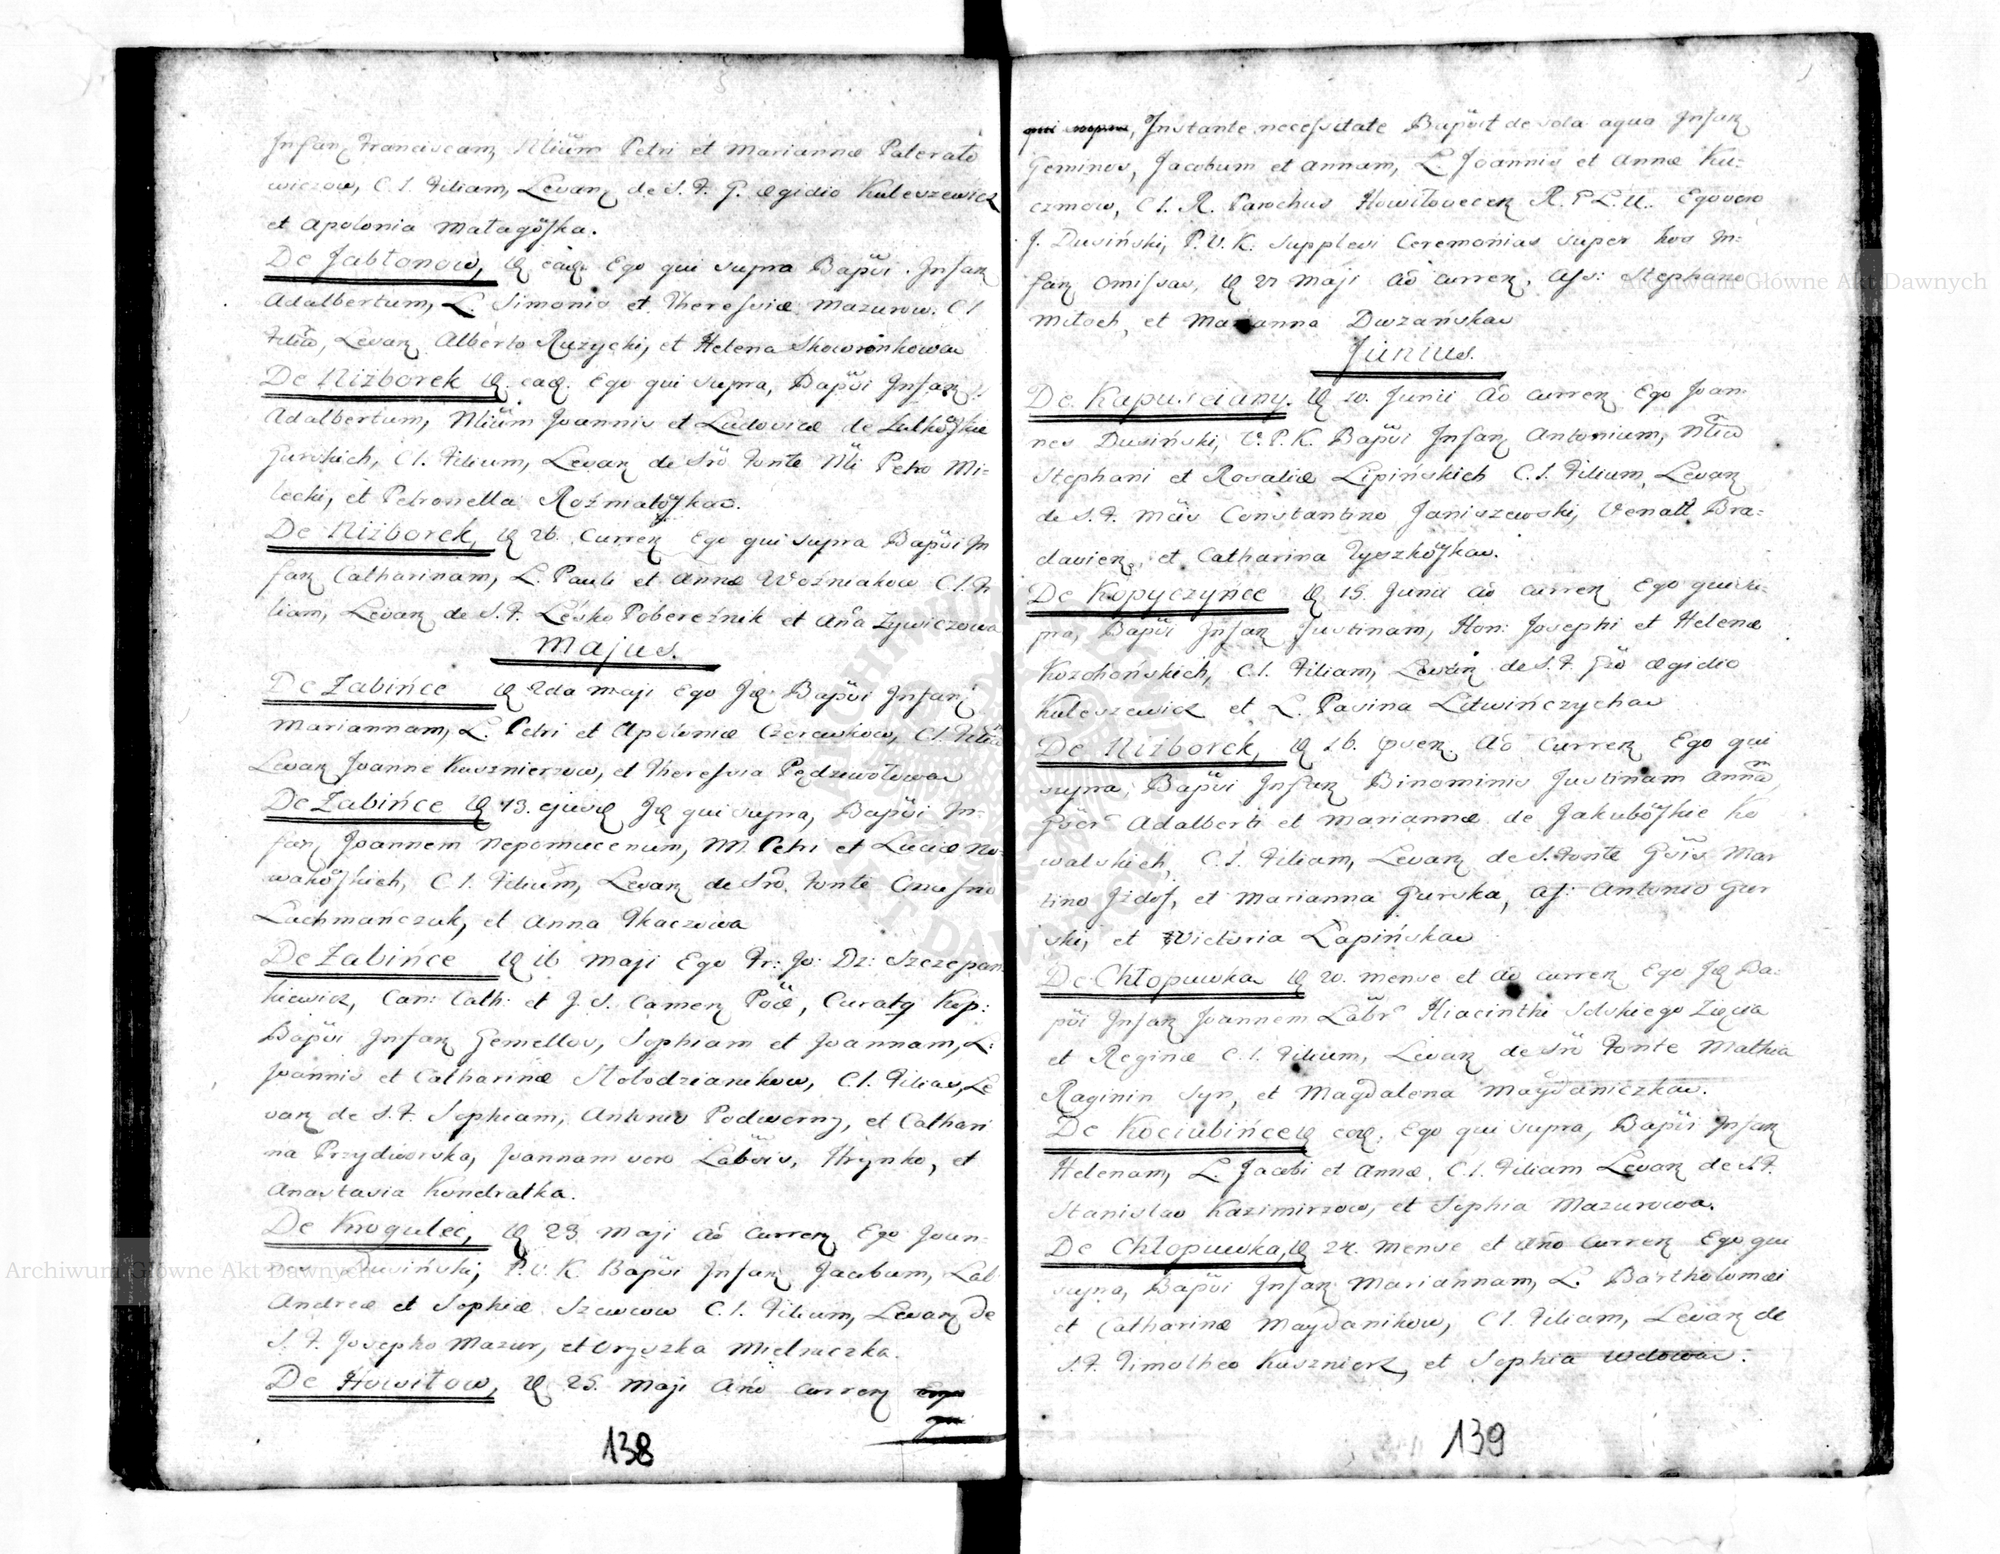 Infan Franciscam, Nlium Petri et Mariannæ Paterato
wiczow, C. l. Filiam, Levan de S. F. G. Ægidio Kuleszewicz
et Apolonia Matagoska.
De Jabłonow, eaq. Ego qui supra Bapvi. Infan
Adalbertum, L. Simonis et Theressiæ Mazurow. C l
Filiu, Levan Alberto Ruzycki, et Helena Skowronkowa
De Niżborek eaq. Ego qui supra, Bapvi Infan
Adalbertum, Nlium Joannis et Ludovicæ de
Gurskich, C l. Filium, Levan de Sro Fonte Nli Petro Mi-
lecki, et Petronella
De Niżborek, 26. Curren Ego qui supra Bapvi In
fan Catharinam, L. Pauli et Annæ Woźniakow C. l. Fi
liam, Levan de S. F. Leśko Pobereźnik et Aña Zywiczowa
Majus.
De Zabińce 2da Maji Ego Bapvi Infan
Mariannam, L. Petri et Apoloniæ Czerewkow, C l. Filia
Levan Joanne Kusznierzow, et Theressia Pędziwołowa
De Zabińce 13. ejusd qui supra, Bapvi In-
fan Joannem Nepomucenum, NN. Petri et Luciæ No-
C l. Filium, Levan de Sro. Fonte
Lachmańczuk, et Anna Tkaczowa
De Zabińce 16 Maji Ego Fr: Jo: Dz: Szczepan
kiewicz, Can: Cath: et J. S. Camen Curatq Kop:
Bapvi Infan Gemellos, Sophiam et Joannam, L:
Joannis et Catharinæ Słobodzianikow, C l. Filias, Le
van de S. F. Sophiam, Antonio Podworny, et Cathari
na Przydworska, Joannam vero Hrynko, et
Anastasia Kondratka.
De Krogulec, 23 Maji Aõ Curren Ego Joan-
nes Dusiński, P. V. K. Bapvi Infan Jacobum, Lab
Andreæ et Sophiæ Szewcow C. l. Filium, Levan de
S. F. Josepho Mazur, et Oryszka Mielniczka.
De Howiłow, 25. Maji Año Curren Ego
qui
138
qui supra, Instante necessitate Bapvit de sola aqua Infan
Geminos, Jacobum et Annam, L Joannis et Annæ Ku-
czmow, C l. R. Parochus R. G L. U. Ego vero
J. Dusiński, P. V. K. supplevi Ceremonias super hos In-
fan omissas, 27 Maji Aõ Curren. Ass: Stephano
Miłoch, et Marianna
Junius.
De Kapusciany. 10. Junii Aõ Curren Ego Joan-
nes Dusiński, V. P. K. Bapvi Infan Antonium,
Stephani et Rosaliæ Lipińskich C. l. Filium, Levan
de S. F. Constantino Janiszewski, Venatt Bra-
davien, et Catharina
De Kopyczyńce 15. Junii Aõ Curren Ego qui su-
pra, Bapvi Infan Justinam, Hon: Josephi et Helenæ
Kozdrońskich, C. l. Filiam, Levan de S. F. Ægidio
Kuleszewicz et L. Pavina Litwińczycha
De Niżborek, 16. Aõ Curren Ego qui
supra, Bapvi Infan Binominis Justinam Anna
Adalberti et Mariannæ de Ko
walskich, C. l. Filiam, Levan de S. Fonte Mar
tino et Marianna Gurska, As: Antonio Gur
ski, et Victoria Łapińska
De Chłopuwka 20. mense et aõ Curren Ego Ba-
pvi Infan Joannem Hiacinthi Solskiego
et Reginæ C. l. Filium, Levan de Sro Fonte Mathia
Raginin Syn, et Magdalena Maydaniczka.
De Kociubińce eod. Ego qui supra, Bapvi Infan
Helenam, L. Jacobi et Annæ, C l. Filiam Levan de S F.
Stanislao Kazimirzow, et Sophia Mazurowa.
De Chłopuwka, 24. Mense et Año Curren Ego qui
supra, Bapvi Infan Mariannam, L. Bartholomæi
et Catharinæ Maydanikow, C l. Filiam, Levan de
S. F. Timotheo Kusznierz, et Sophia Wdowa.
139
Archiwum Główne Akt Dawnych
Archiwum Główne Akt Dawnych